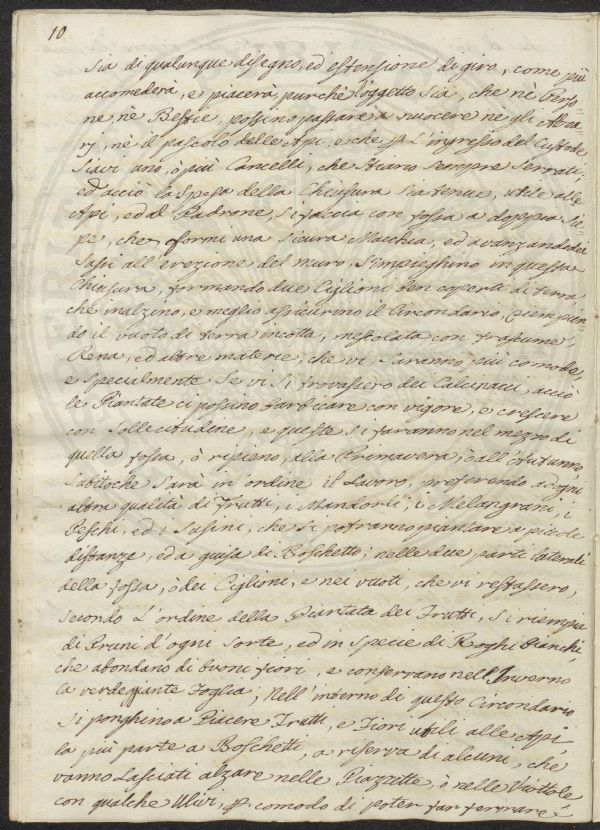 10
sia di qualunque disegno, ed' estensione di giro, come più
accomederà, e piacerà, purchè l'oggetto sia, che nè Perso
ne, nè Bestie, possino passare a nuocere nè gli Alvea
rj, nè il pascolo delle Api, e che p l'ingresso del Custode,
siavi uno, ò più Cancelli, che stiano sempre serrati;
ed' acciò la spesa della Chiusura sia tenue, utile alle
Api, ed al Padrone, si faccia con fossa a doppia Sie
pe, che formi una sicura Macchia, ed avanzando dei
Sassi all'erezione del muro, s'impieghino in questa
Chiusura, formando due Ciglioni ben coperti di terra,
che inalzino, e meglio assicurino il Circondario, riempien
do il vuoto di terra incotta, mescolata con frasume,
Rena, ed altre materie, che vi saranno più comode,
e specialmente se vi si trovassero dei Calcinacci, acciò
le Piantate ci possino barbicare con vigore, e crescere
con sollecitudine, e queste si faranno nel mezzo di
quella fossa, ò ripieno, alla Primavera, ò all'Autunno,
subitochè sarà in ordine il Lavoro, preferendo ad ogni
altra qualità di frutti, i Mandorli, i Melagrani, i
Peschi, ed i Susini, che si potranno piantare a piccole
distanze, ed a guisa di Boschetto; nelle due parti laterali
della fossa, ò dei Ciglioni, e nei vuoti, che vi restassero,
secondo l'ordine della Piantata dei Frutti, si riempia
di Pruni d'ogni sorte, ed in specie di Roghi bianchi,
che abondano di buoni fiori, e conservano nell'Inverno
la verdeggiante Foglia; Nell'interno di questo Circondario
si ponghino a Piacere Frutti, e Fiori utili alle Api,
la più parte a Boschetti, a riserva di alcuni, che
vanno lasciati alzare nelle Piazzette, ò nelle Viottole
con qualche Ulivi, p comodo di poter far fermare